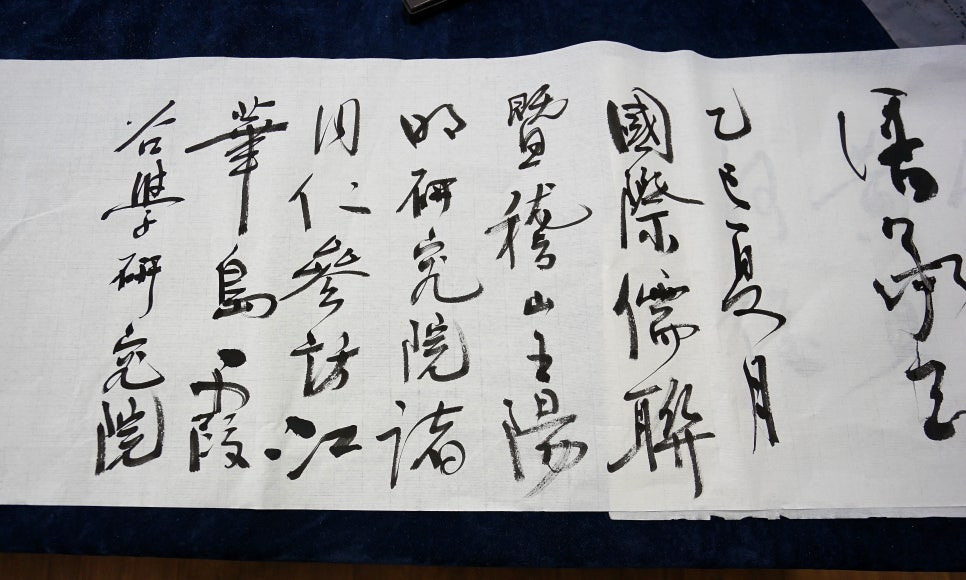 乙巳夏月
國際儒聯
暨稽山王陽
明研究院諸
同仁參訪江
華島霞
谷學研究院